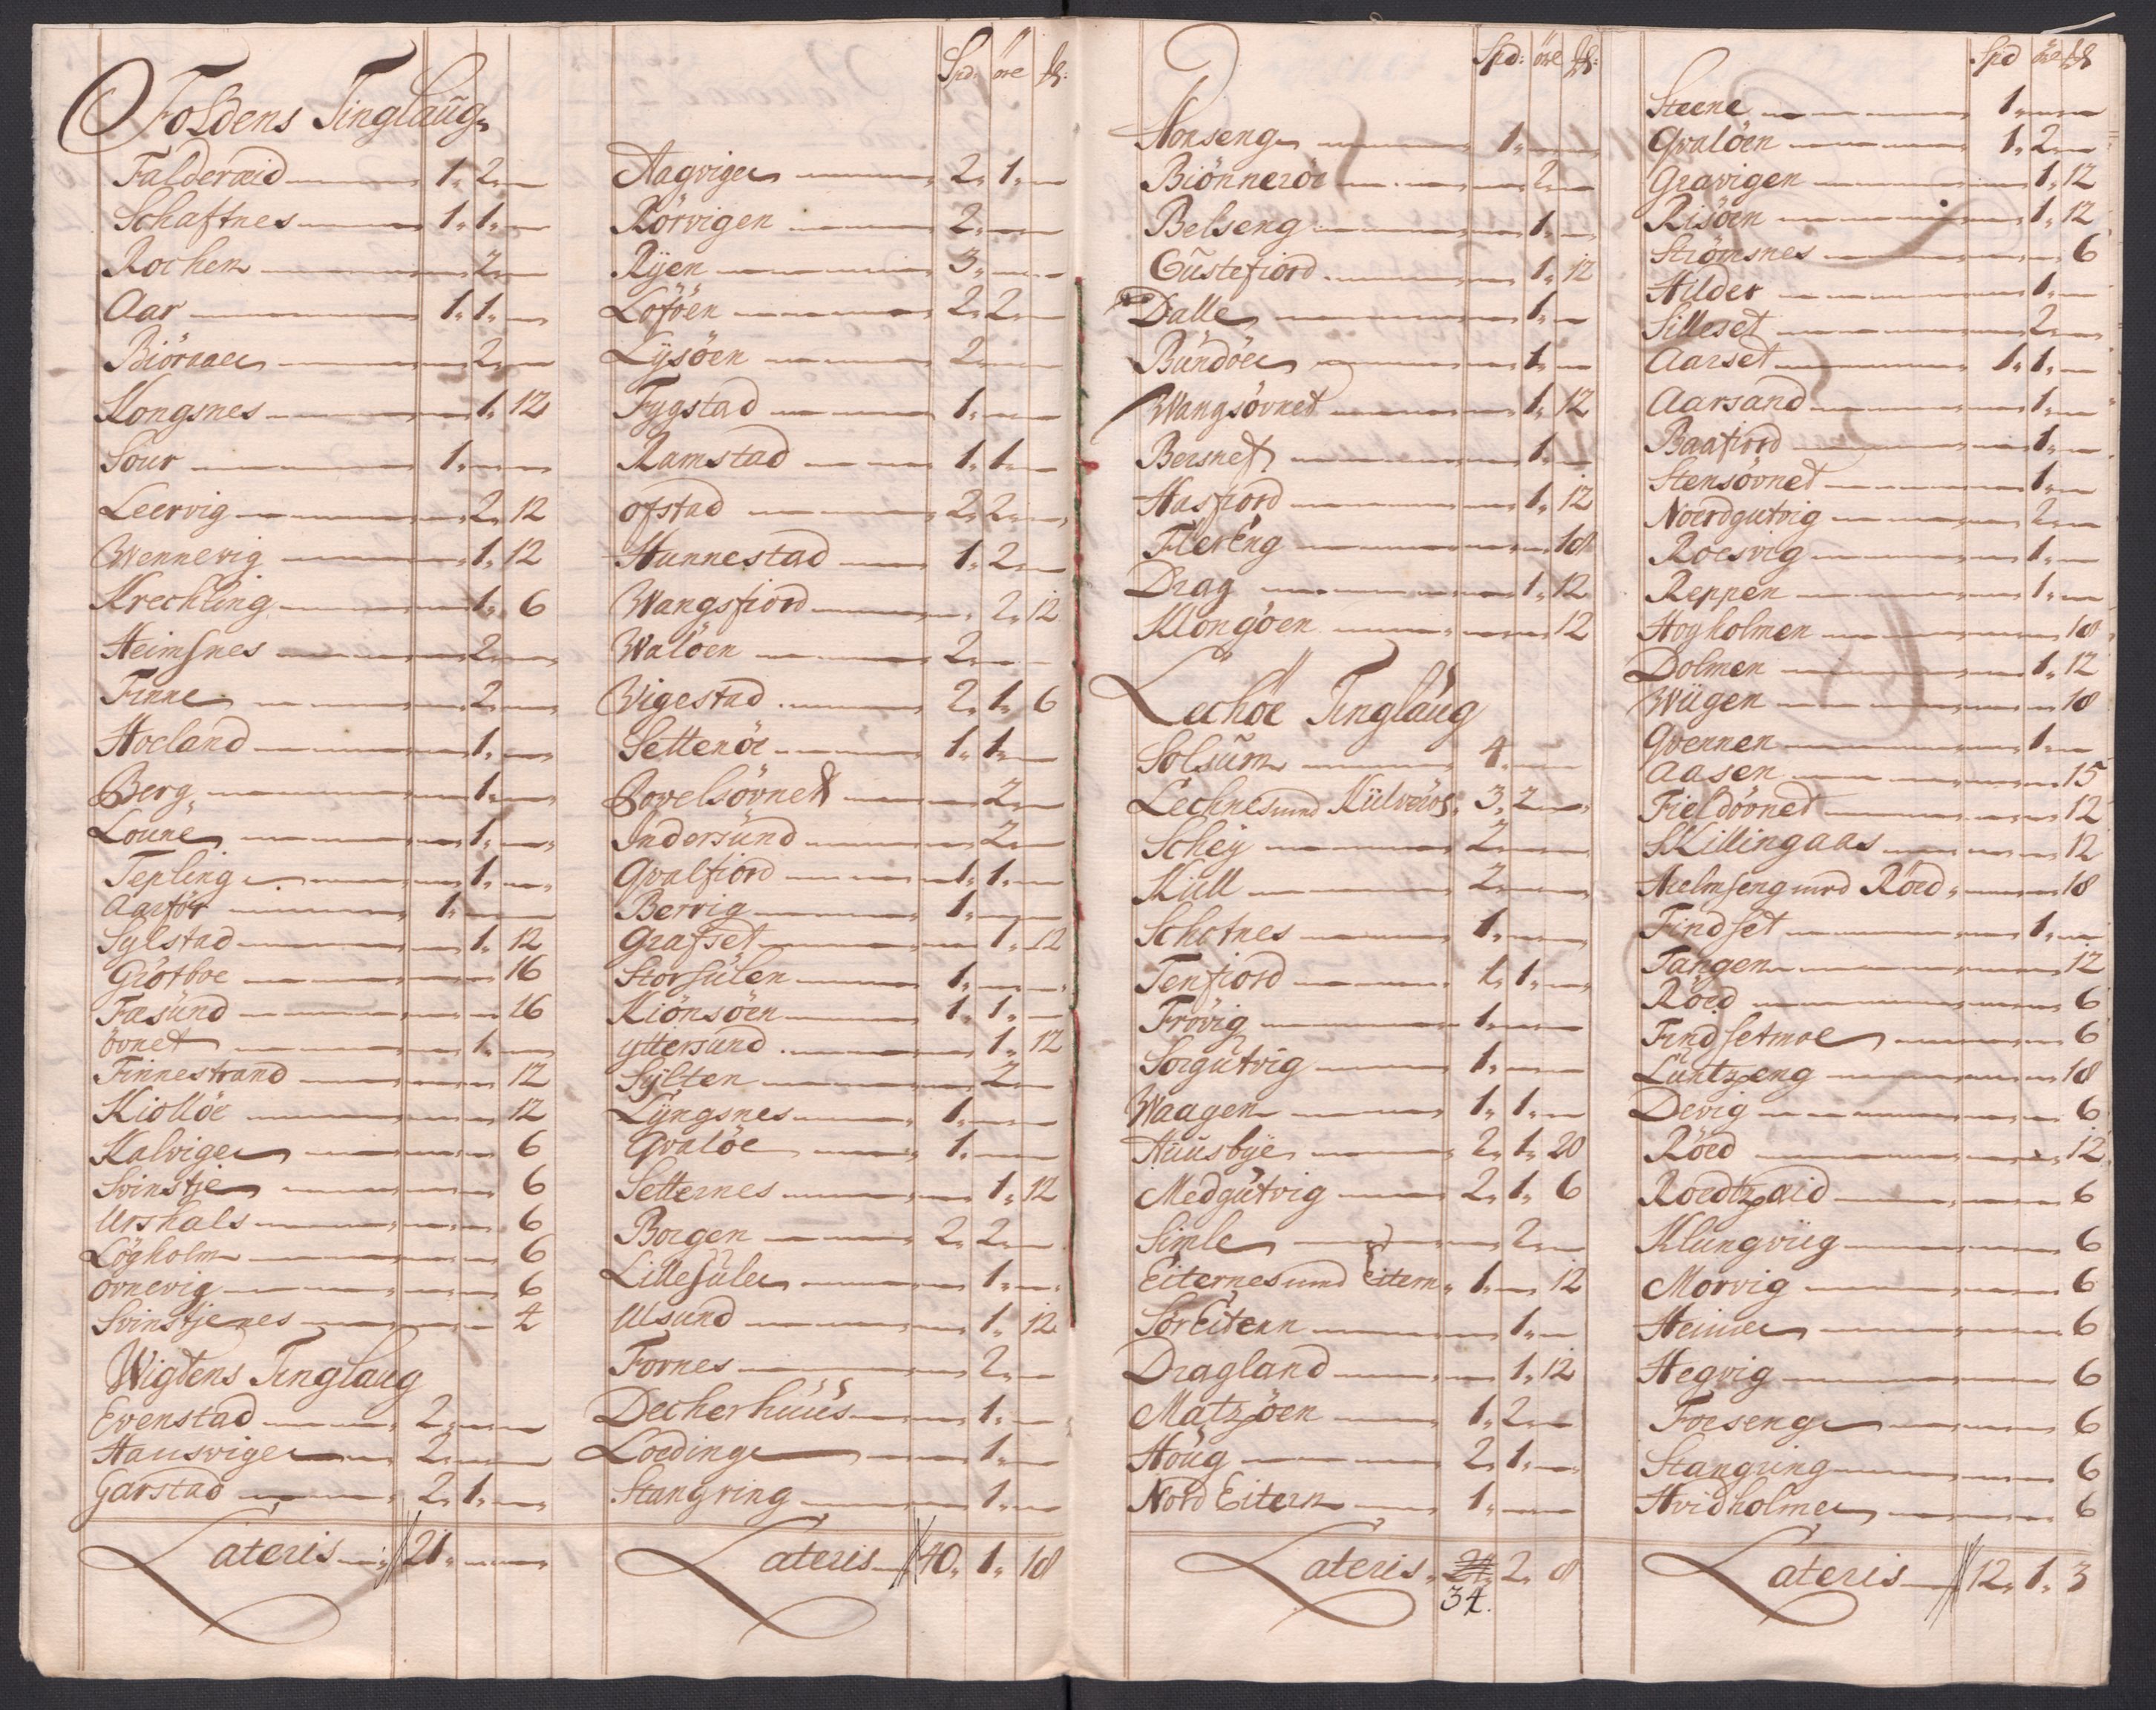 Foldens Tinglaug
Falderæid 1. 2.
Schaftnes 1. 1.
Rochen 2.
Aar 1. 1.
Biöraaen 2.
Kongsnes 1. 12
Sour 1.
Leervig 2. 12
Wennevig 1. 12
Krechling 1. 6
Heimsnes 2.
Finne 2.
Hoeland 1.
Berg 1.
Loune 1.
Tepling 1.
Aarför 1.
Sylstad 1. 12
Grötboe 16
Fasund 16
övnet 1.
Finnestrand 12
Kiollöe 12
Kalvigen 6
Svinstje 6
Urshals 6
Lögholm 6
ovnevig 6
Svinstjenes 4
Wigtens Tinglaug
Evenstad 2.
Hansvigen 2.
Garstad 2. 1.
Lateris 21.
Spd: öre
Aagvigen 2. 1.
Rörvigen 2.
Ryen 3.
Löföen 2. 2.
Lysöen 2.
Fygstad 1.
Ramstad 1. 1.
ofstad 2. 2.
Hunnestad 1. 2.
Wangsfiord 2. 12
Walöen 2.
Wigestad 2. 1. 6
Settenöe 1. 1.
Bovelsövnet 2.
Indersund 2.
Qvalfiord 1. 1.
Berrig 1.
Grafset 1. 12
Storsulen 1.
Kiönsöen 1. 1.
yttersund 1. 12
Sylten 2.
Lyngsnes 1.
Qvalöe 1.
Setternes 1. 12
Borgen 2. 2.
Lillesulen 1.
Ulsund 1. 12
Fornes 2.
Decherhuus 1.
Loeding 1.
Stangring 1.
Lateris 40. 1. 18
Spd: öre
Horseng 1.
Biönneröe 2.
Belseng 1.
Gustefiord 1. 12
Dalle 1.
Bundöen 1.
Wangsövnet 1. 12
Bersnes 1.
Hasfiord 1. 12
Flereng 18
Drag 1. 12
Klongöen 12
Lechöe Tinglaug
Solsum 4.
Lechnes und Kulveröe 3. 2.
Schey 2.
Kiill 2.
Schotnes 1.
Tenfiord 1. 1.
Frövig 1.
Sorgutvig 1.
Waagen 1. 1.
Huusbye 2. 1. 20
Medgutvig 2. 1. 6
Simle 2.
Eiternes und Eitern 1. 12
Sör Eitern 1.
Dragland 1. 12
Matzöen 1. 2.
Houg 2. 1.
Nord Eitern 1.
Lateris 2. 8
34.
Spd öre
Steene 1.
Qvalöen 1. 2.
Gravigen 1. 12
Risöen 1. 12
Strömsnes 6
Hilder 1.
Silleset 2.
Aarset 1. 1.
Aarsand 1.
Baafiord 1.
Stensövnet 1.
Noerdgutvig 2.
Roesvig 1.
Reppen 1.
Hogholmen 18
Dolmen 1. 12
Wiigen 18
Qvennen 1.
Aasen 15
Fieldövnet 12
Skillingaas 12
Hielmseng und Röed 18
Findset 1.
Tangen 12
Röed 6
Findsetmoe 6
Luntzeng 18
Devig 6
Röed 12
Roedtzaid 6
Klungviig 6
Morvig 6
Heimen 6
Hegvig 6
Foeseng 6
Stangring 6
Hvidholmen 6
Lateris 12. 1. 3